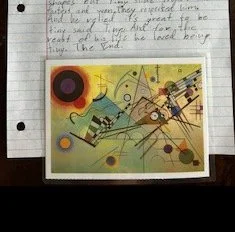 shapes but Tiny
and won, they respected him.
And he yelled it's great to be
tiny said Tiny. And for the
rest of his life he loved being
tiny. The End.